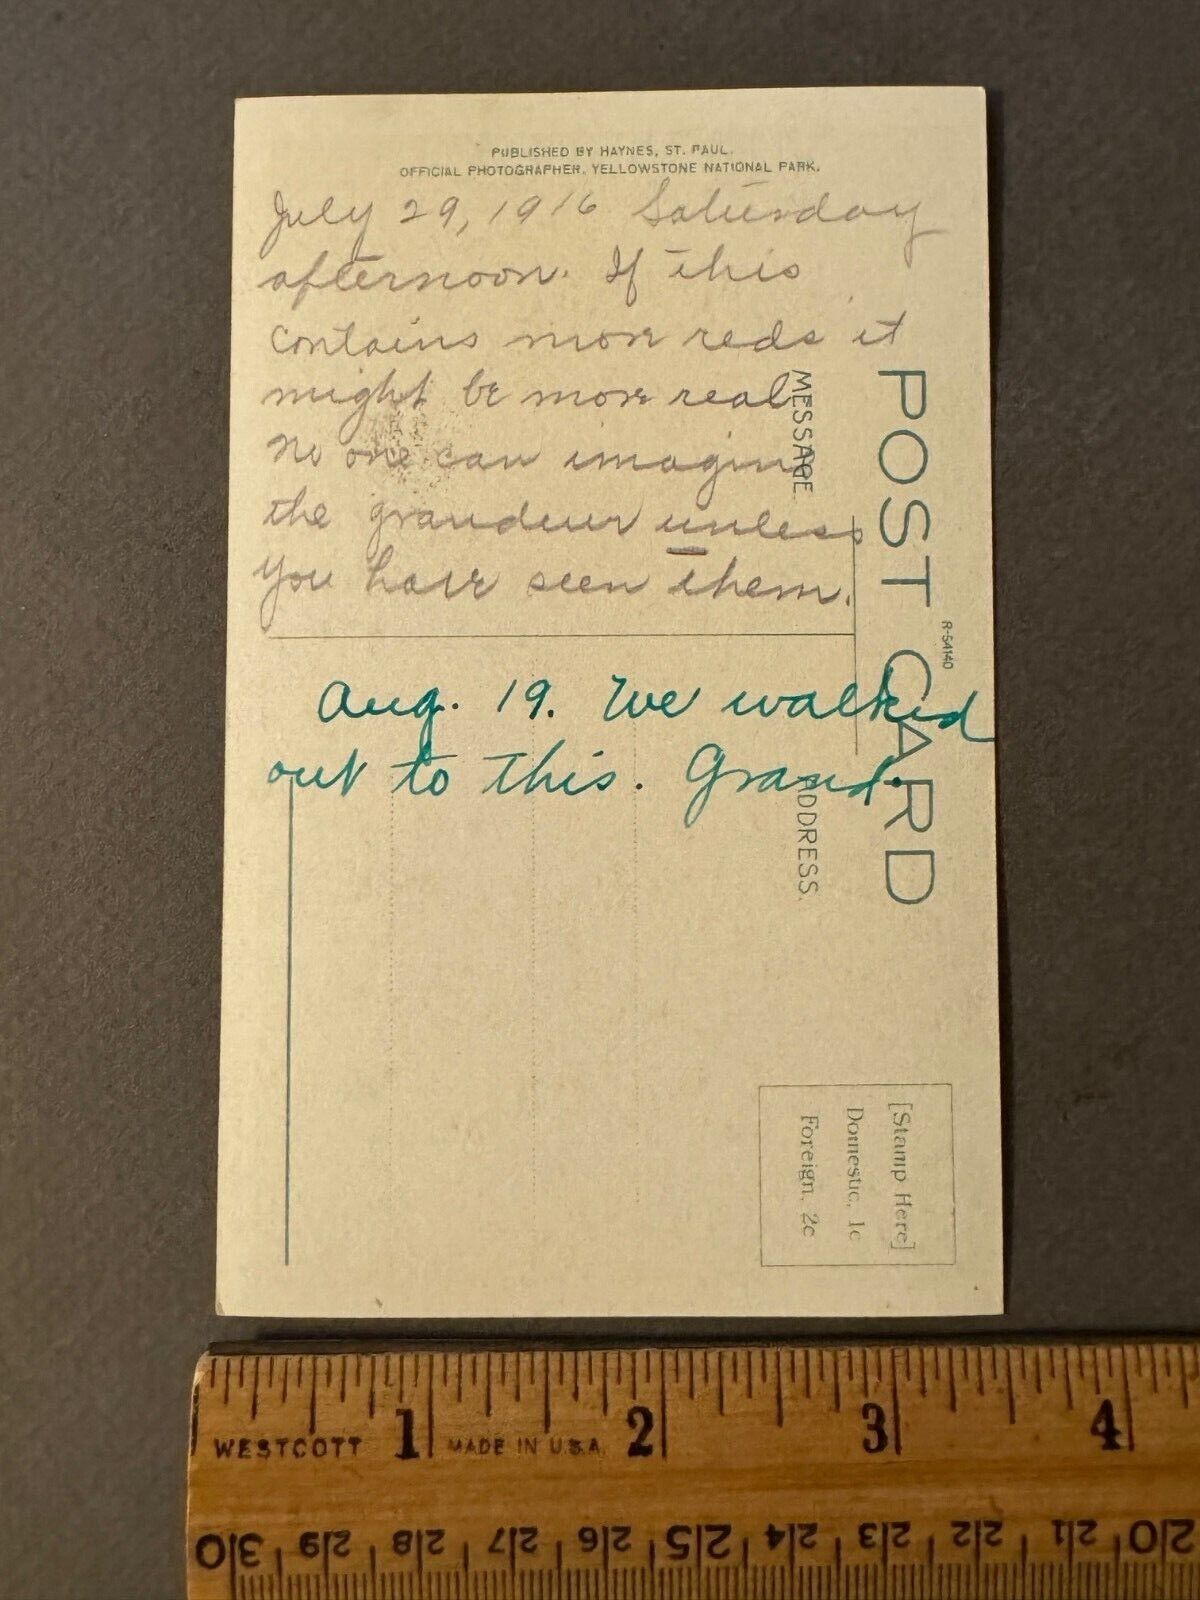 PUBLISHED BY HAYNES, ST. PAUL.
OFFICIAL PHOTOGRAPHER, YELLOWSTONE NATIONAL PARK.
July 29, 1916 Saturday
afternoon. If this
contains more reds it
might be more real.
No one can imagine
the grandeur unless
you have seen them.
Aug. 19. We walked
out to this. Grand.
POST CARD
MESSAGE.
ADDRESS.
R-54140
[Stamp Here]
Domestic, 1c
Foreign, 2c
1 2 3 4
WESTCOTT MADE IN U.S.A.
30 29 28 27 26 25 24 23 22 21 20